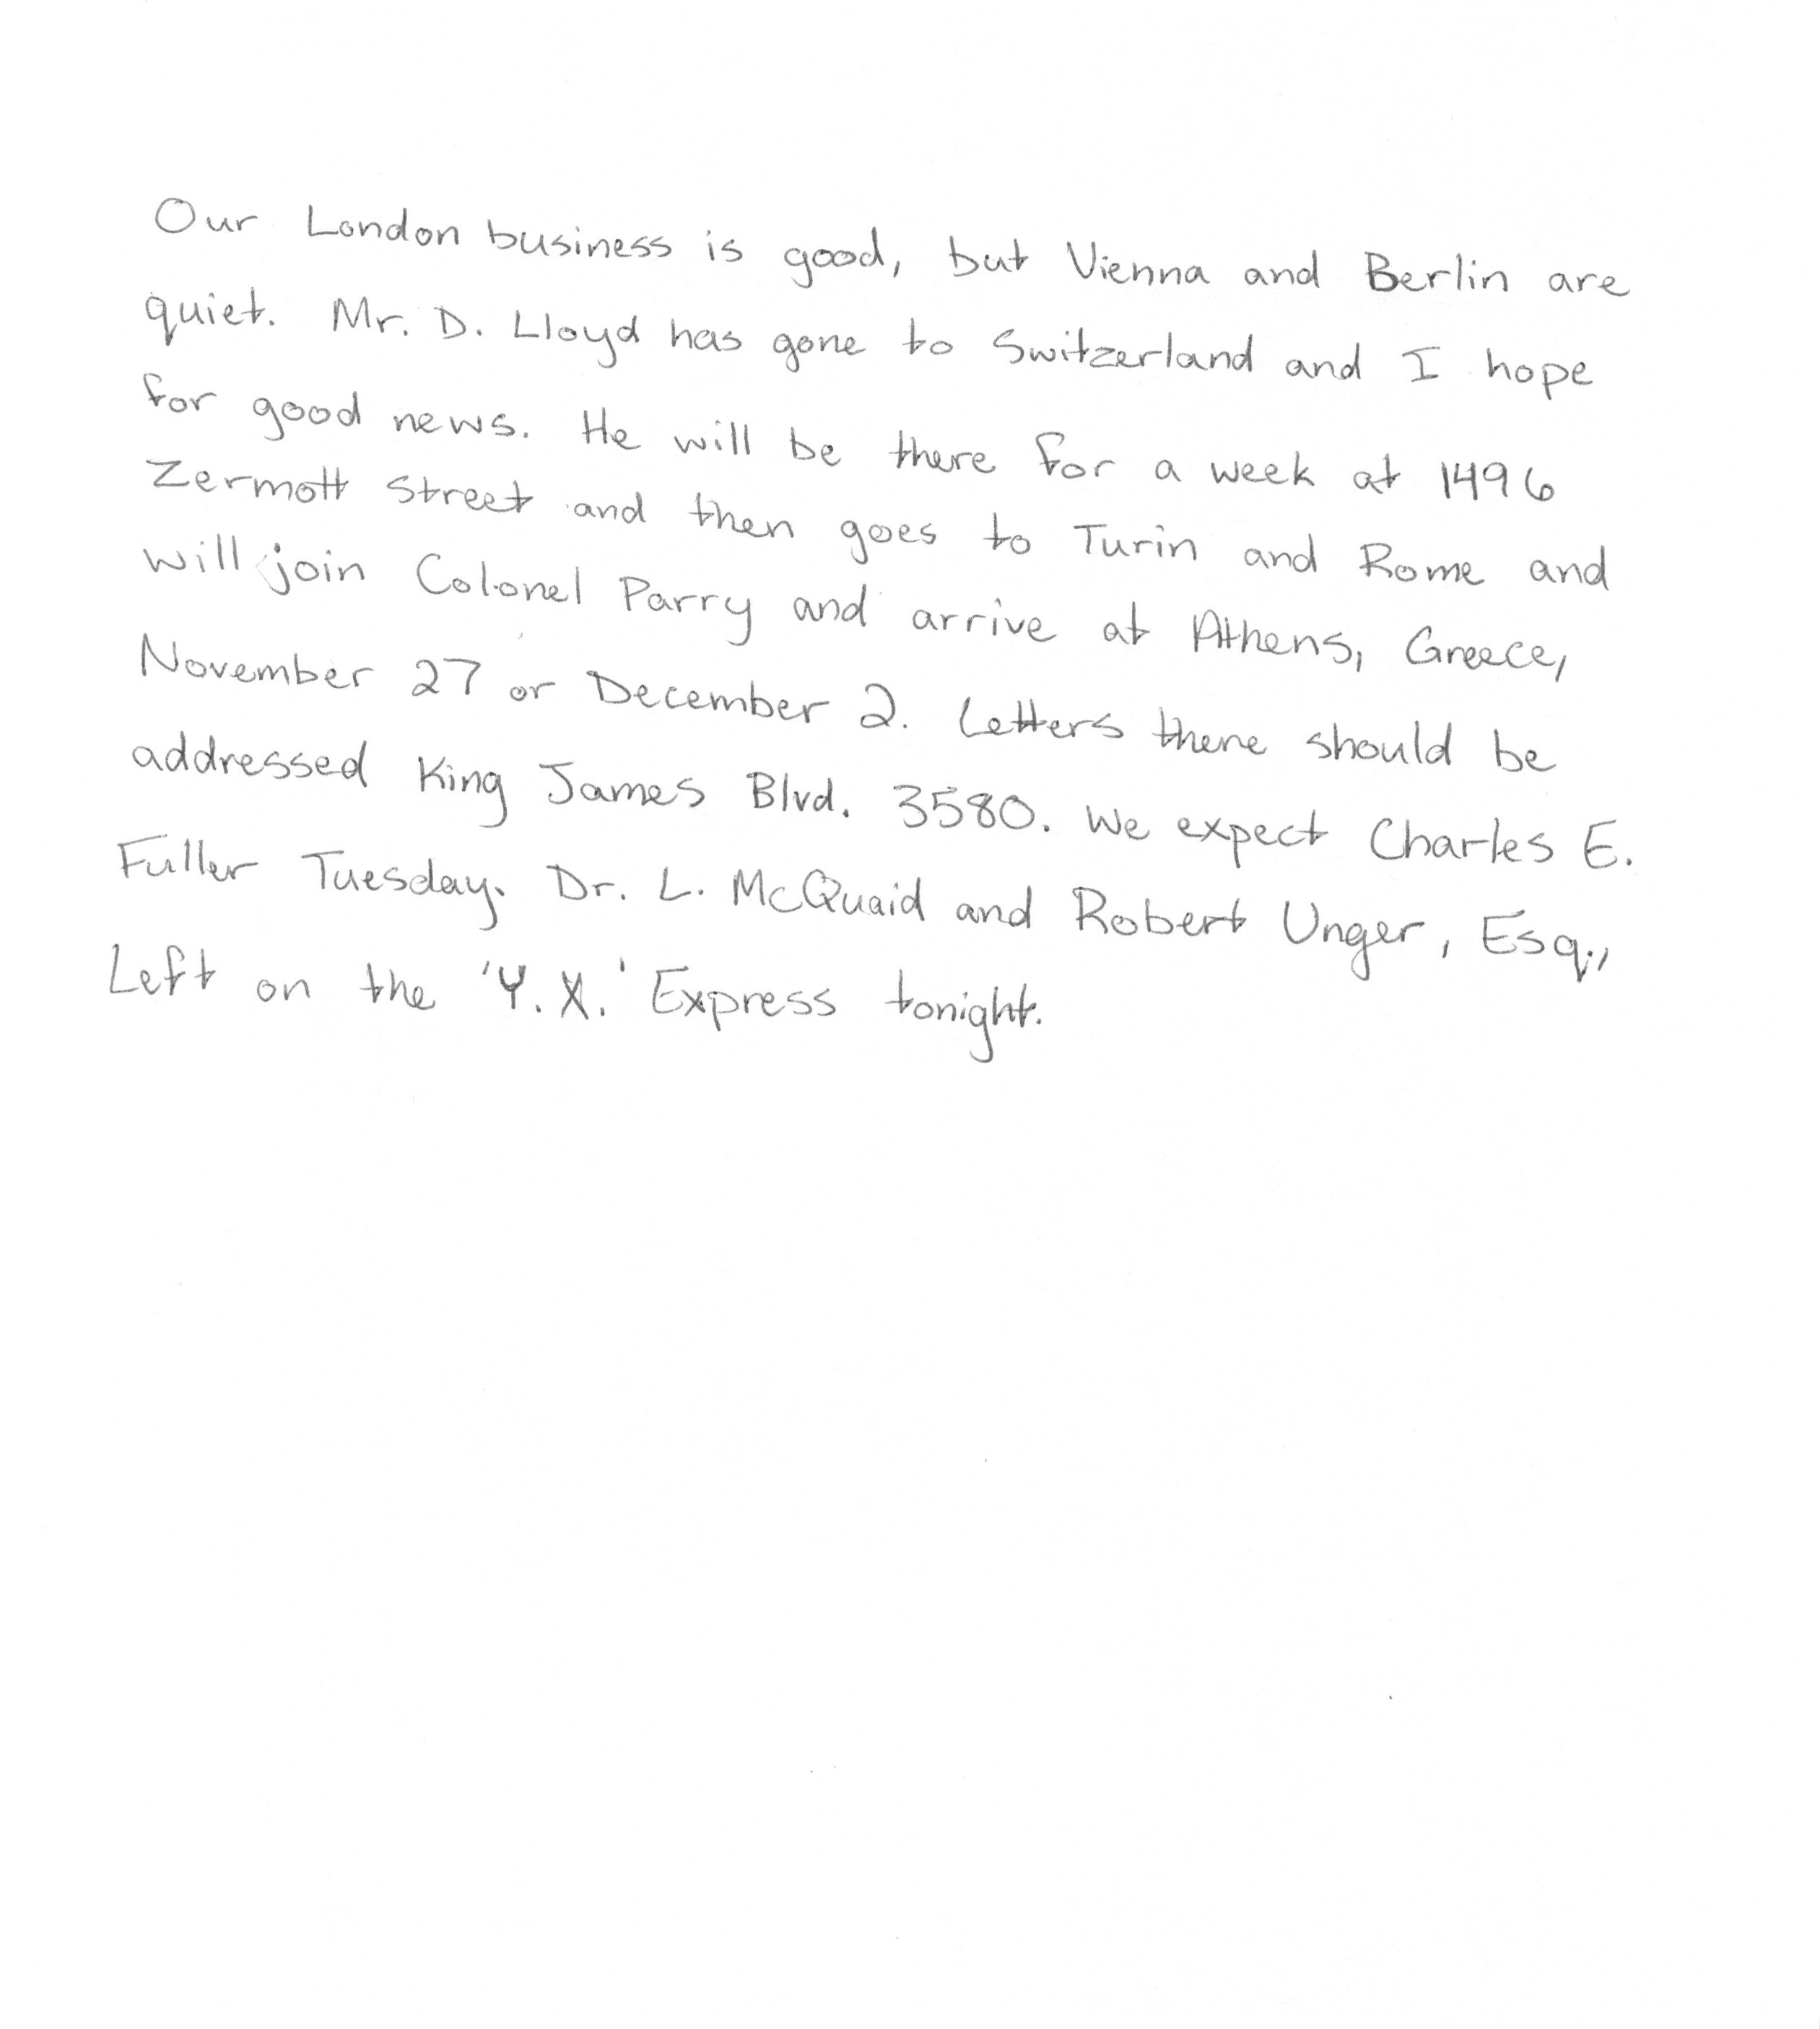 Our London business is good, but Vienna and Berlin are
quiet. Mr. D. Lloyd has gone to Switzerland and I hope
for good news. He will be there for a week at 1496
Zermott Street and then goes to Turin and Rome and
will join Colonel Parry and arrive at Athens, Greece,
November 27 or December 2. Letters there should be
addressed King James Blvd. 3580. We expect Charles E.
Fuller Tuesday. Dr. L. McQuaid and Robert Unger, Esq.,
Left on the 'Y.X.' Express tonight.